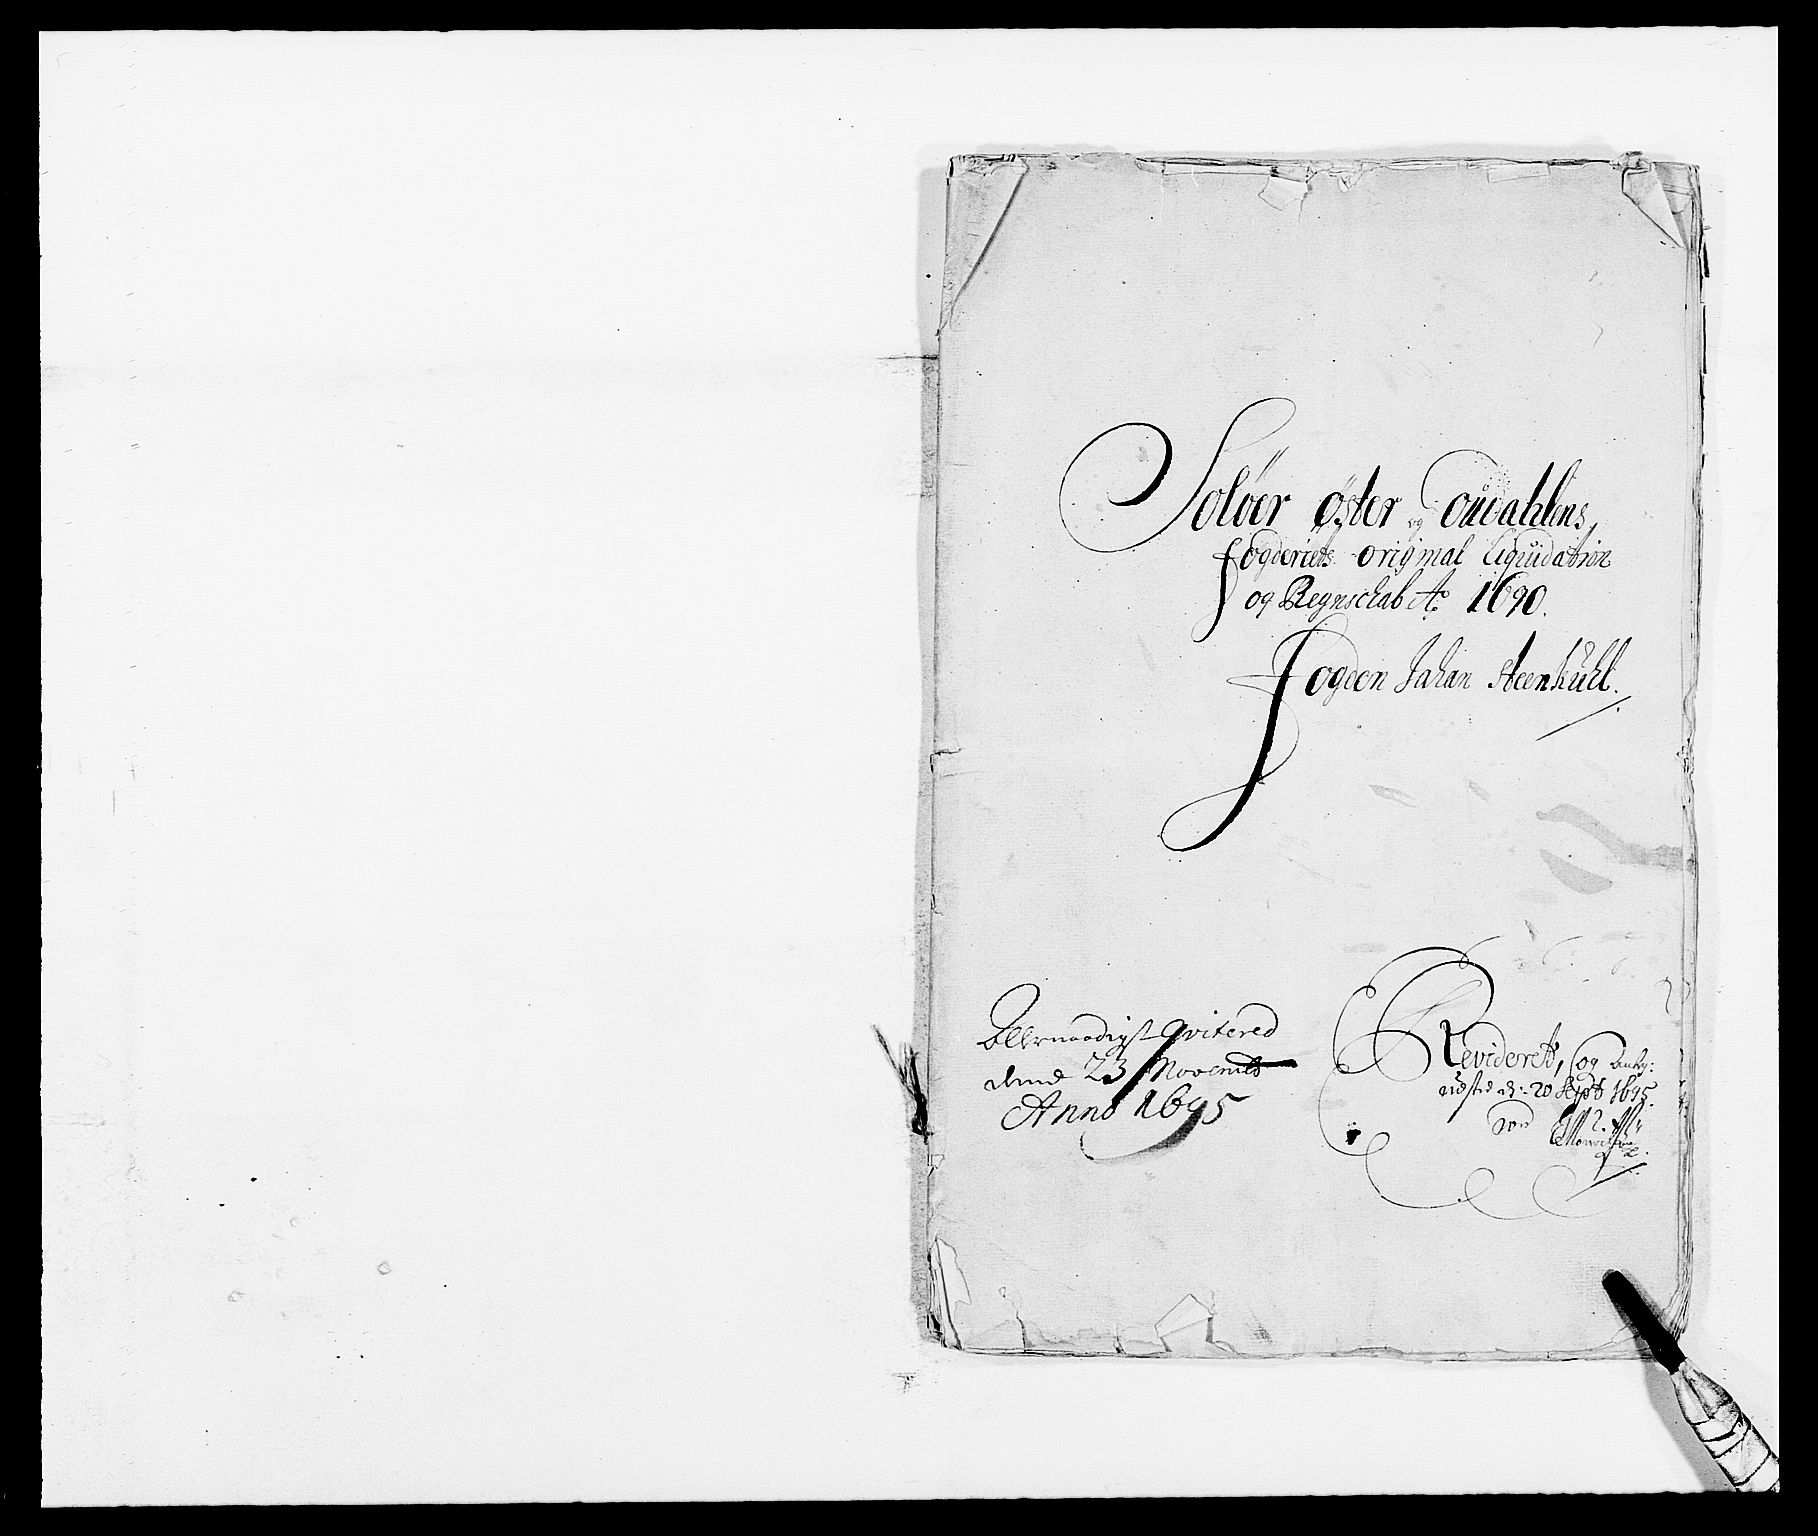 Soløer øster og Oudahlens,
fogderiets original Liquidation
og Regnschab Ao 1690.
fogden Jahan Steenkuhl.
Allernaadigst Qvitered
dend 23 Novemb
Anno 1695
Revideret, og
udsted d: 20 Sept 1695.